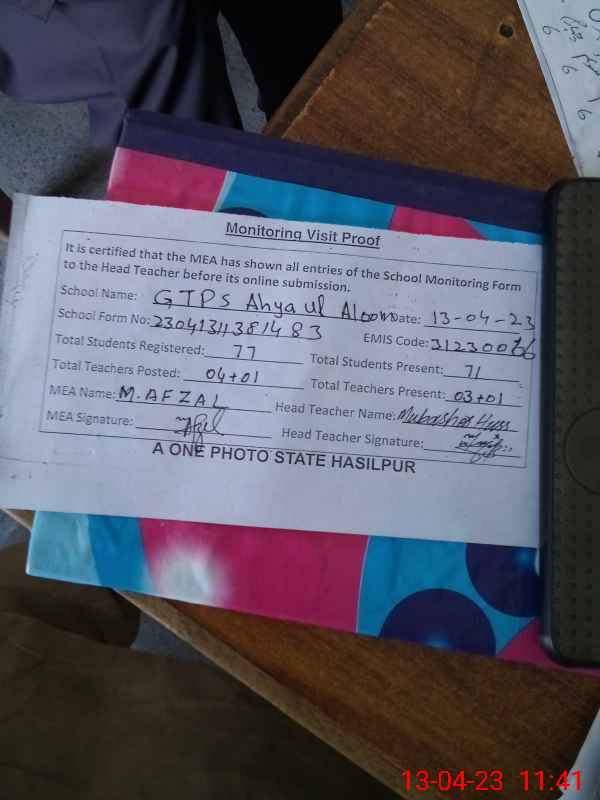 Monitoring Visit Proof
It is certified that the MEA has shown all entries of the School Monitoring Form
to the Head Teacher before its online submission.
School Name: GTPS Ahya ul Aloom Date: 13-04-23
School Form No: 2304131381483 EMIS Code: 31230066
Total Students Registered: 77 Total Students Present: 71
Total Teachers Posted: 04+01 Total Teachers Present: 03+01
MEA Name: M. AFZAL Head Teacher Name: Mubasher Huss
MEA Signature: Head Teacher Signature:
A ONE PHOTO STATE HASILPUR
13-04-23 11:41